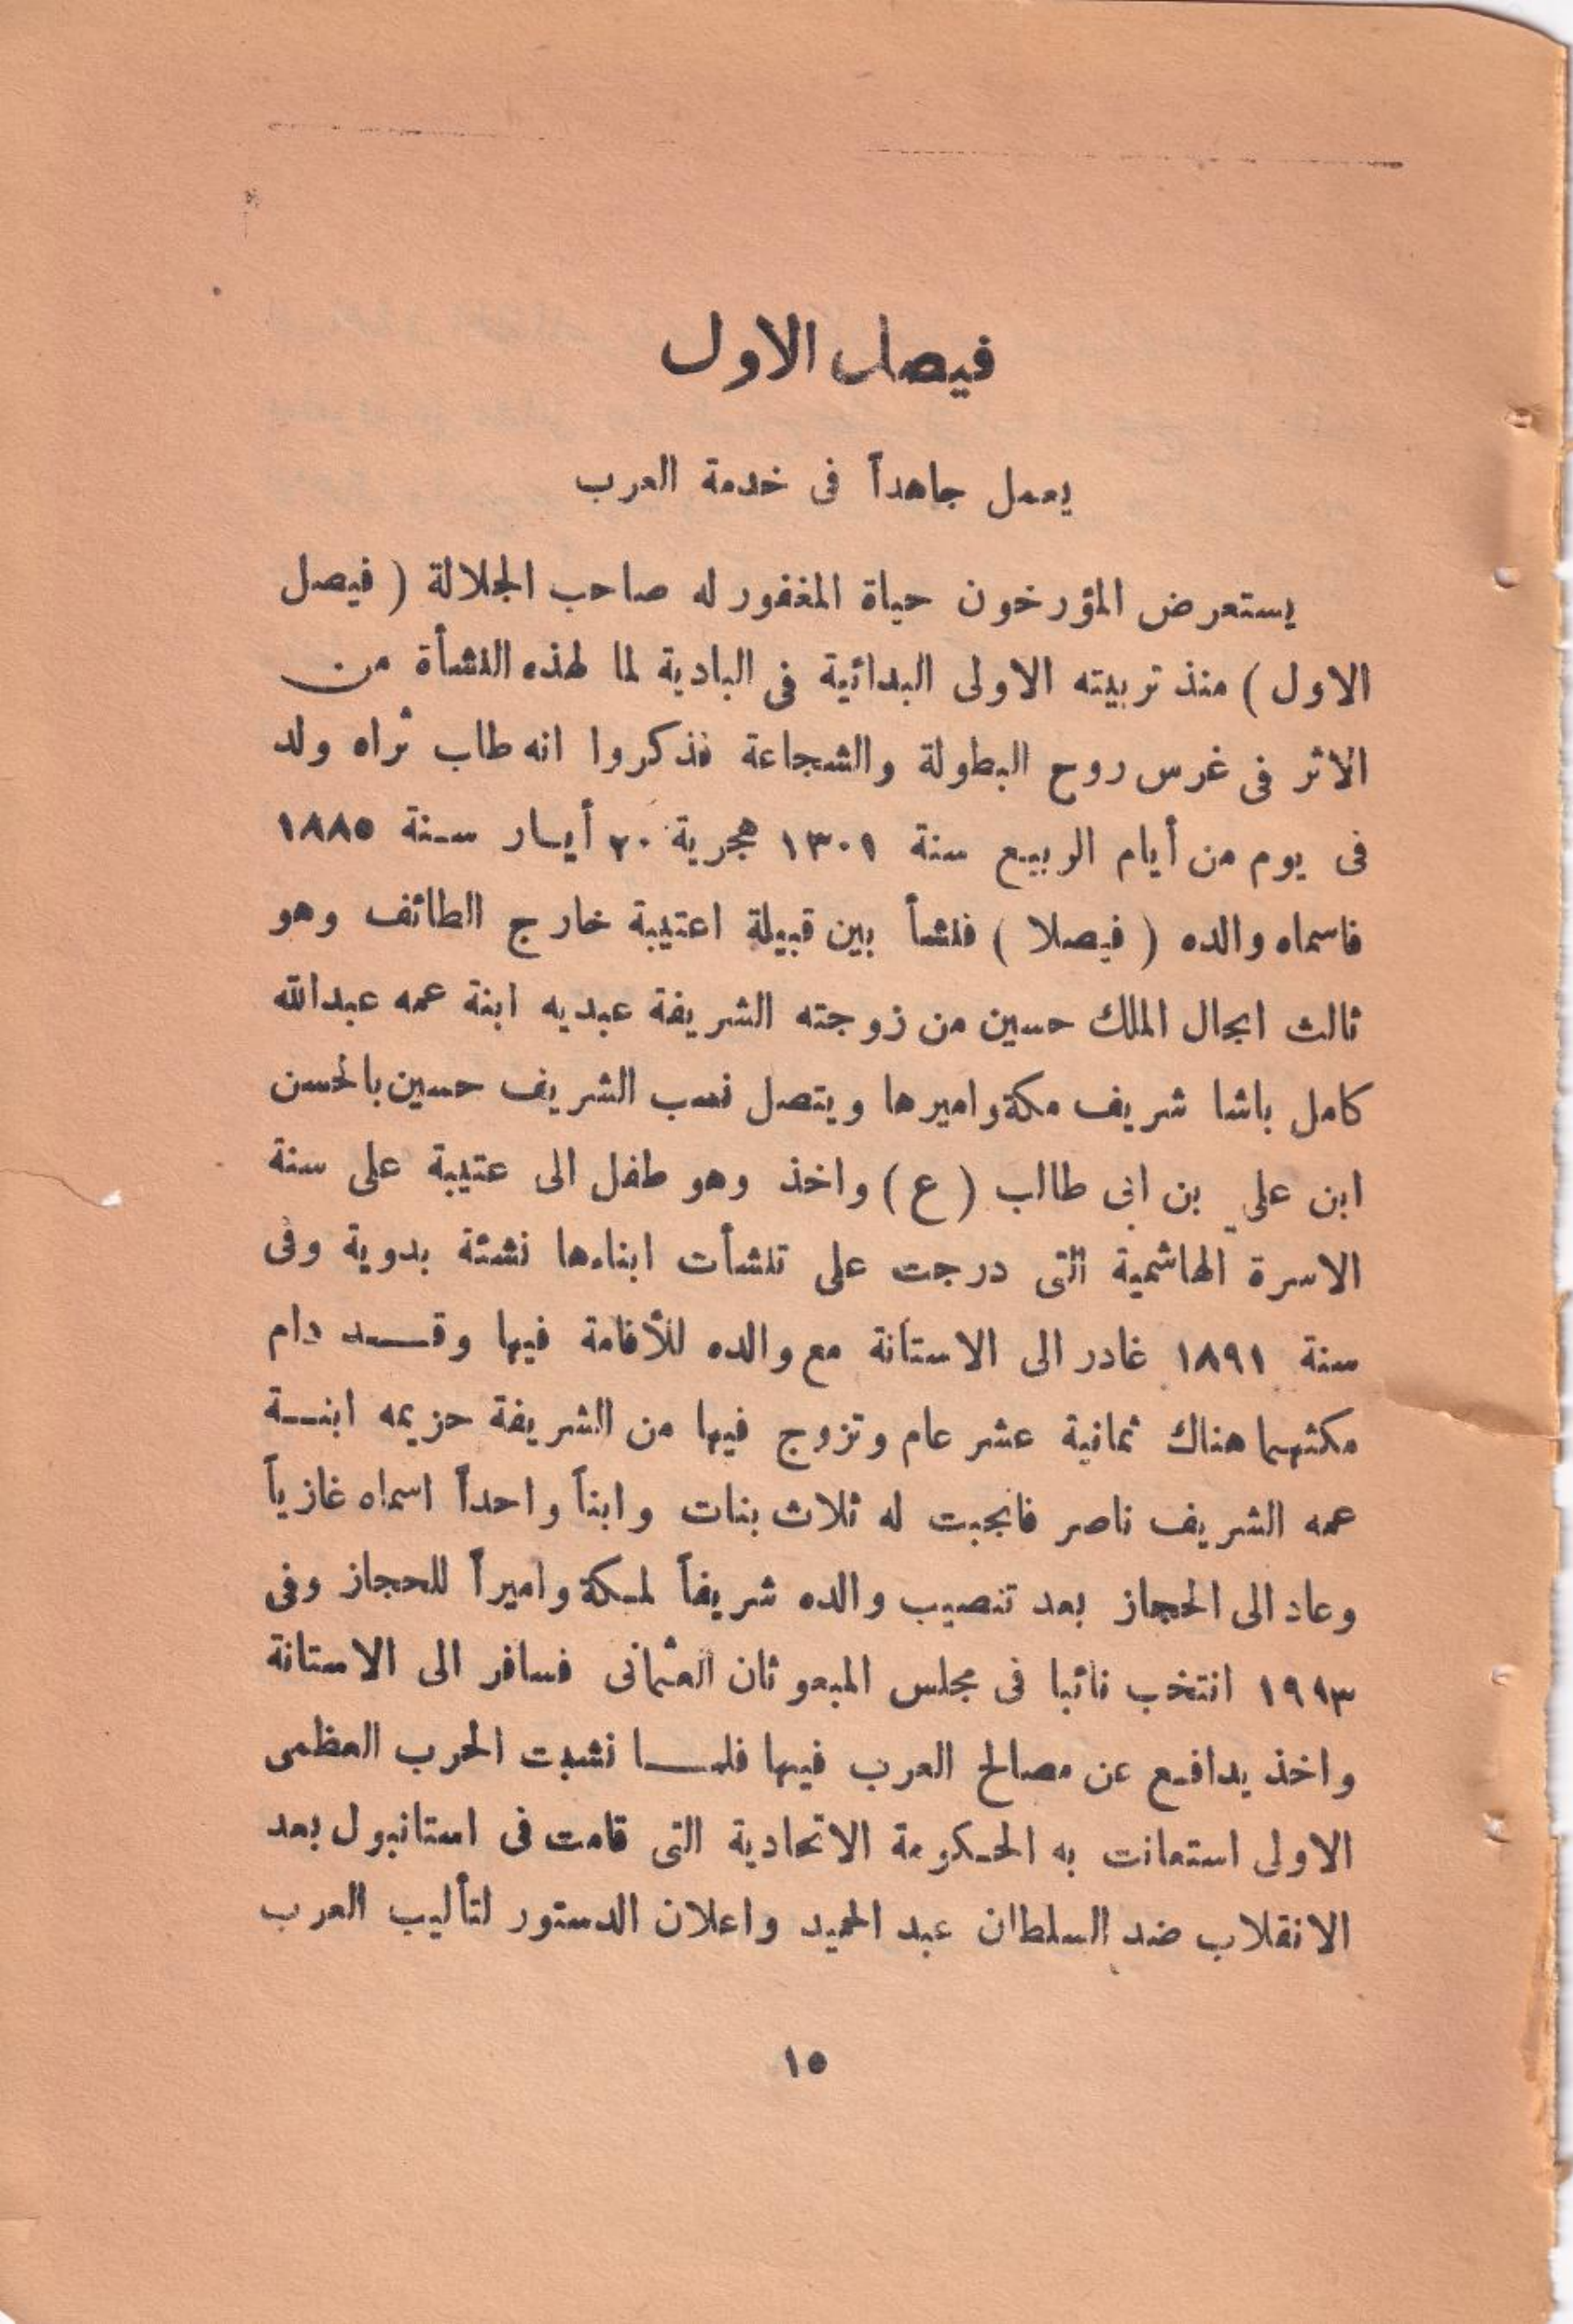 فيصل الاول
يعمل جاهداً فى خدمة العرب
يستعرض المؤرخون حياة المغفور له صاحب الجلالة ( فيصل
الاول ) منذ تربيته الاولى البدائية فى البادية لما لهذه النشأة من
الاثر فى غرس روح البطولة والشجاعة فذكروا انه طاب ثراه ولد
فى يوم من أيام الربيع سنة ١٣٠١ هجرية ٢٠ أيار سنة ١٨٨٥
فاسماه والده ( فيصلا ) فنشأ بين قبيلة اعتيبة خارج الطائف وهو
ثالث انجال الملك حسين من زوجته الشريفة عبديه ابنة عمه عبدالله
كامل باشا شريف مكة واميرها ويتصل نسب الشريف حسين بالحسن
ابن على بن ابى طالب ( ع ) واخذ وهو طفل الى عتيبة على سنة
الاسرة الهاشمية التى درجت على تنشأت ابناءها نشئة بدوية وفى
سنة ١٨٩١ غادر الى الاستانة مع والده للأقامة فيها وقد دام
مكثهما هناك ثمانية عشر عام وتزوج فيها من الشريفة حزيمه ابنة
عمه الشريف ناصر فانجبت له ثلاث بنات وابناً واحداً اسماه غازياً
وعاد الى الحجاز بعد تنصيب والده شريفاً لمكة واميراً للحجاز وفى
١٩١٣ انتخب نائبا فى مجلس المبعوثان العثمانى فسافر الى الاستانة
واخذ يدافع عن مصالح العرب فيها فلما نشبت الحرب العظمى
الاولى استعانت به الحكومة الاتحادية التى قامت فى استانبول بعد
الانقلاب ضد السلطان عبد الحميد واعلان الدستور لتأليب العرب
١٥